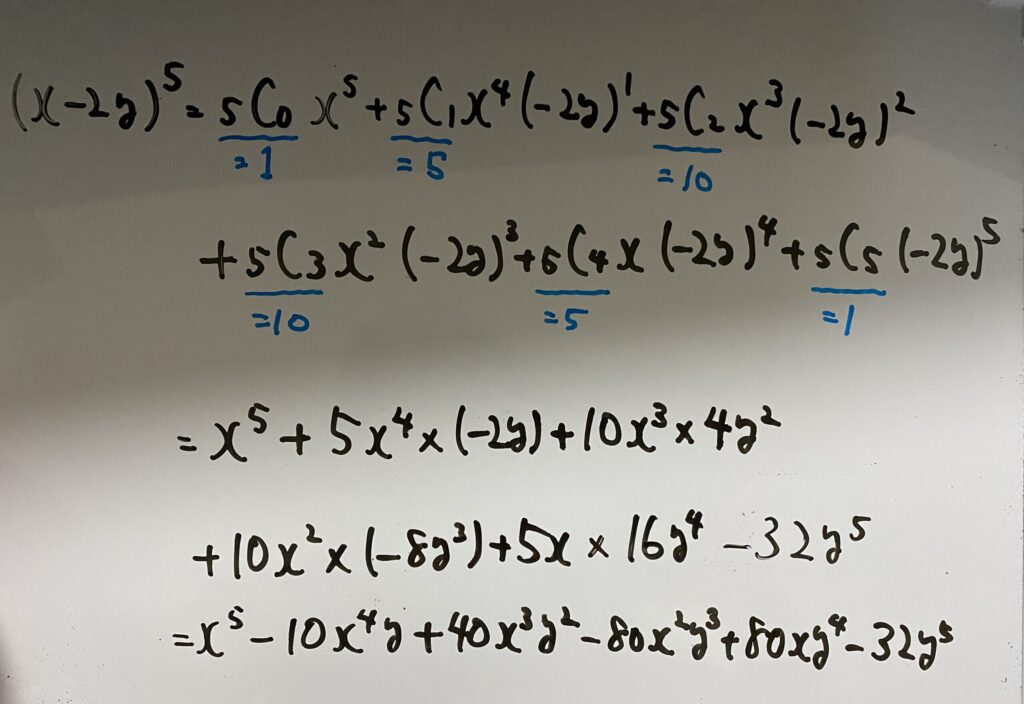 (x-2y)⁵=₅C₀x⁵+₅C₁x⁴(-2y)¹+₅C₂x³(-2y)²
=1 =5 =10
+₅C₃x²(-2y)³+₅C₄x(-2y)⁴+₅C₅(-2y)⁵
=10 =5 =1
=x⁵+5x⁴×(-2y)+10x³×4y²
+10x²×(-8y³)+5x×16y⁴-32y⁵
=x⁵-10x⁴y+40x³y²-80x²y³+80xy⁴-32y⁵